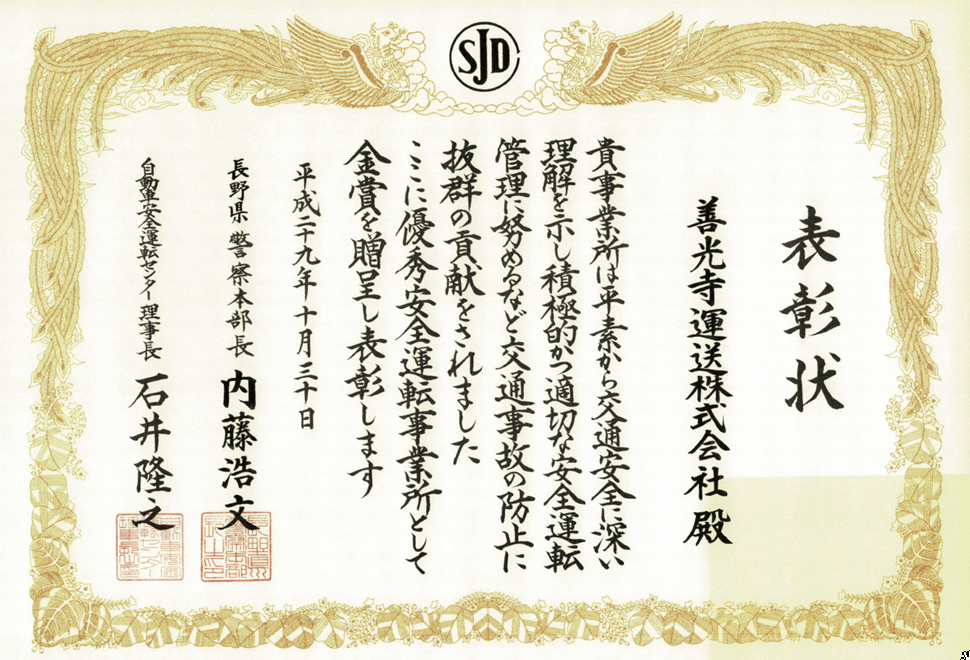 SJD
表彰状
善光寺運送株式会社殿
貴事業所は平素から交通安全に深い
理解を示し積極的かつ適切な安全運転
管理に努めるなど交通事故の防止に
抜群の貢献をされました
ここに優秀安全運転事業所として
金賞を贈呈し表彰します
平成二十九年十月三十日
長野県警察本部長 内藤浩文
自動車安全運転センター理事長 石井隆之